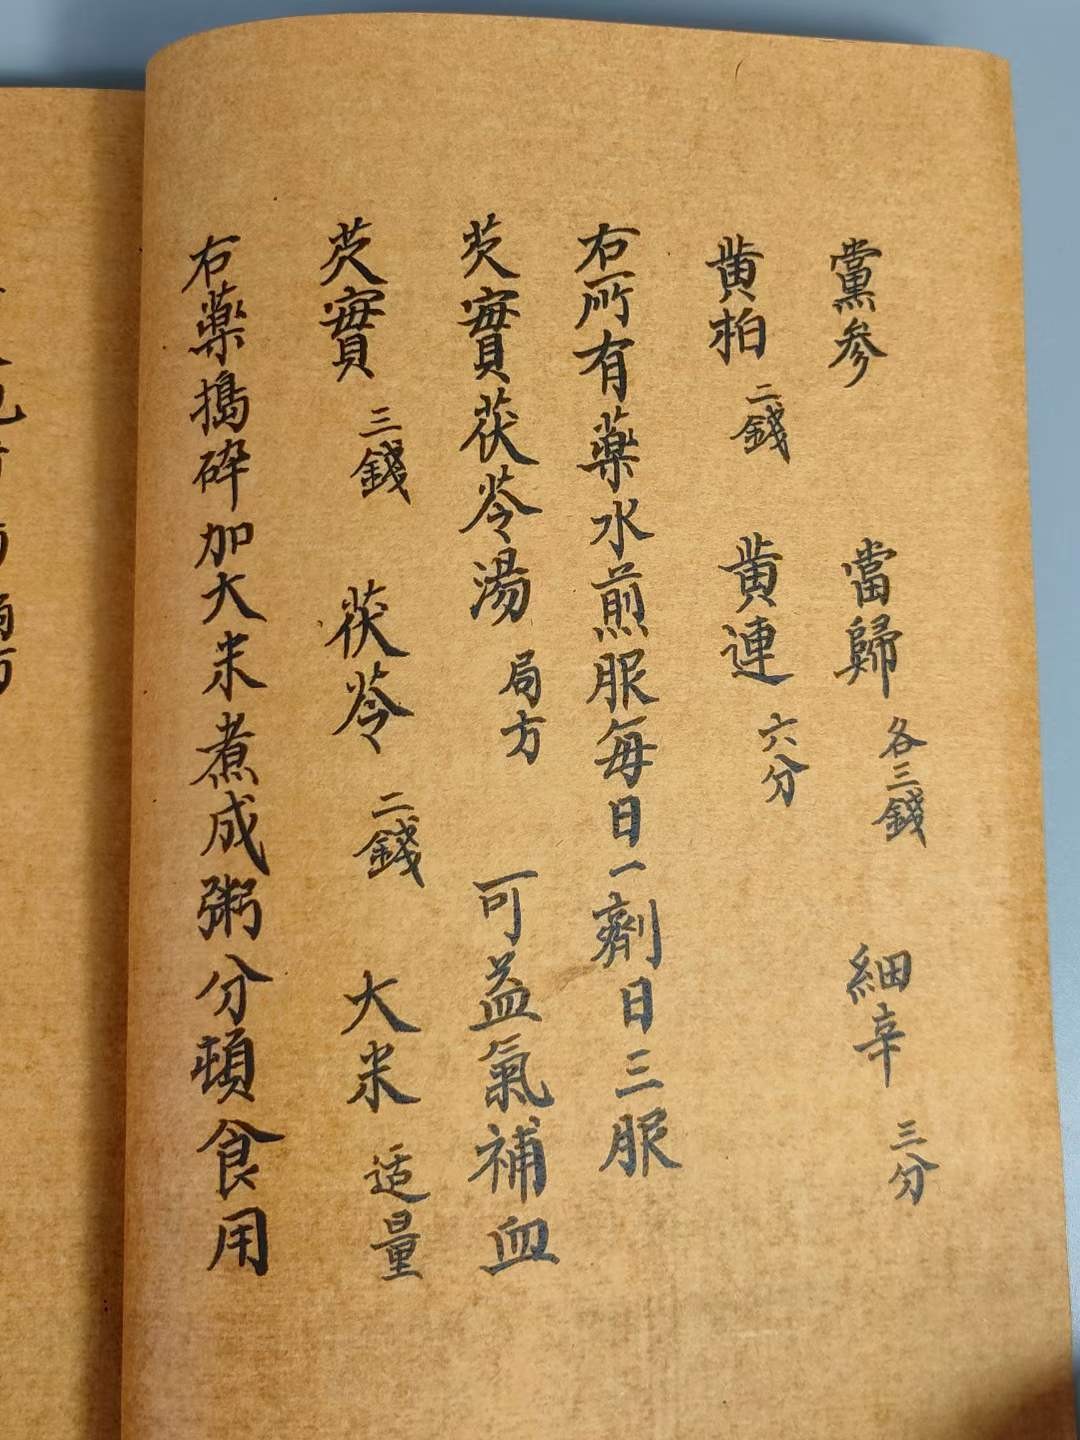 黨參 當歸 各三錢 細辛 三分
黄柏 二錢 黄連 六分
右所有藥水煎服每日一劑日三服
芡實茯苓湯 局方 可益氣補血
芡實 三錢 茯苓 二錢 大米 适量
右藥搗碎加大米煮成粥分頓食用